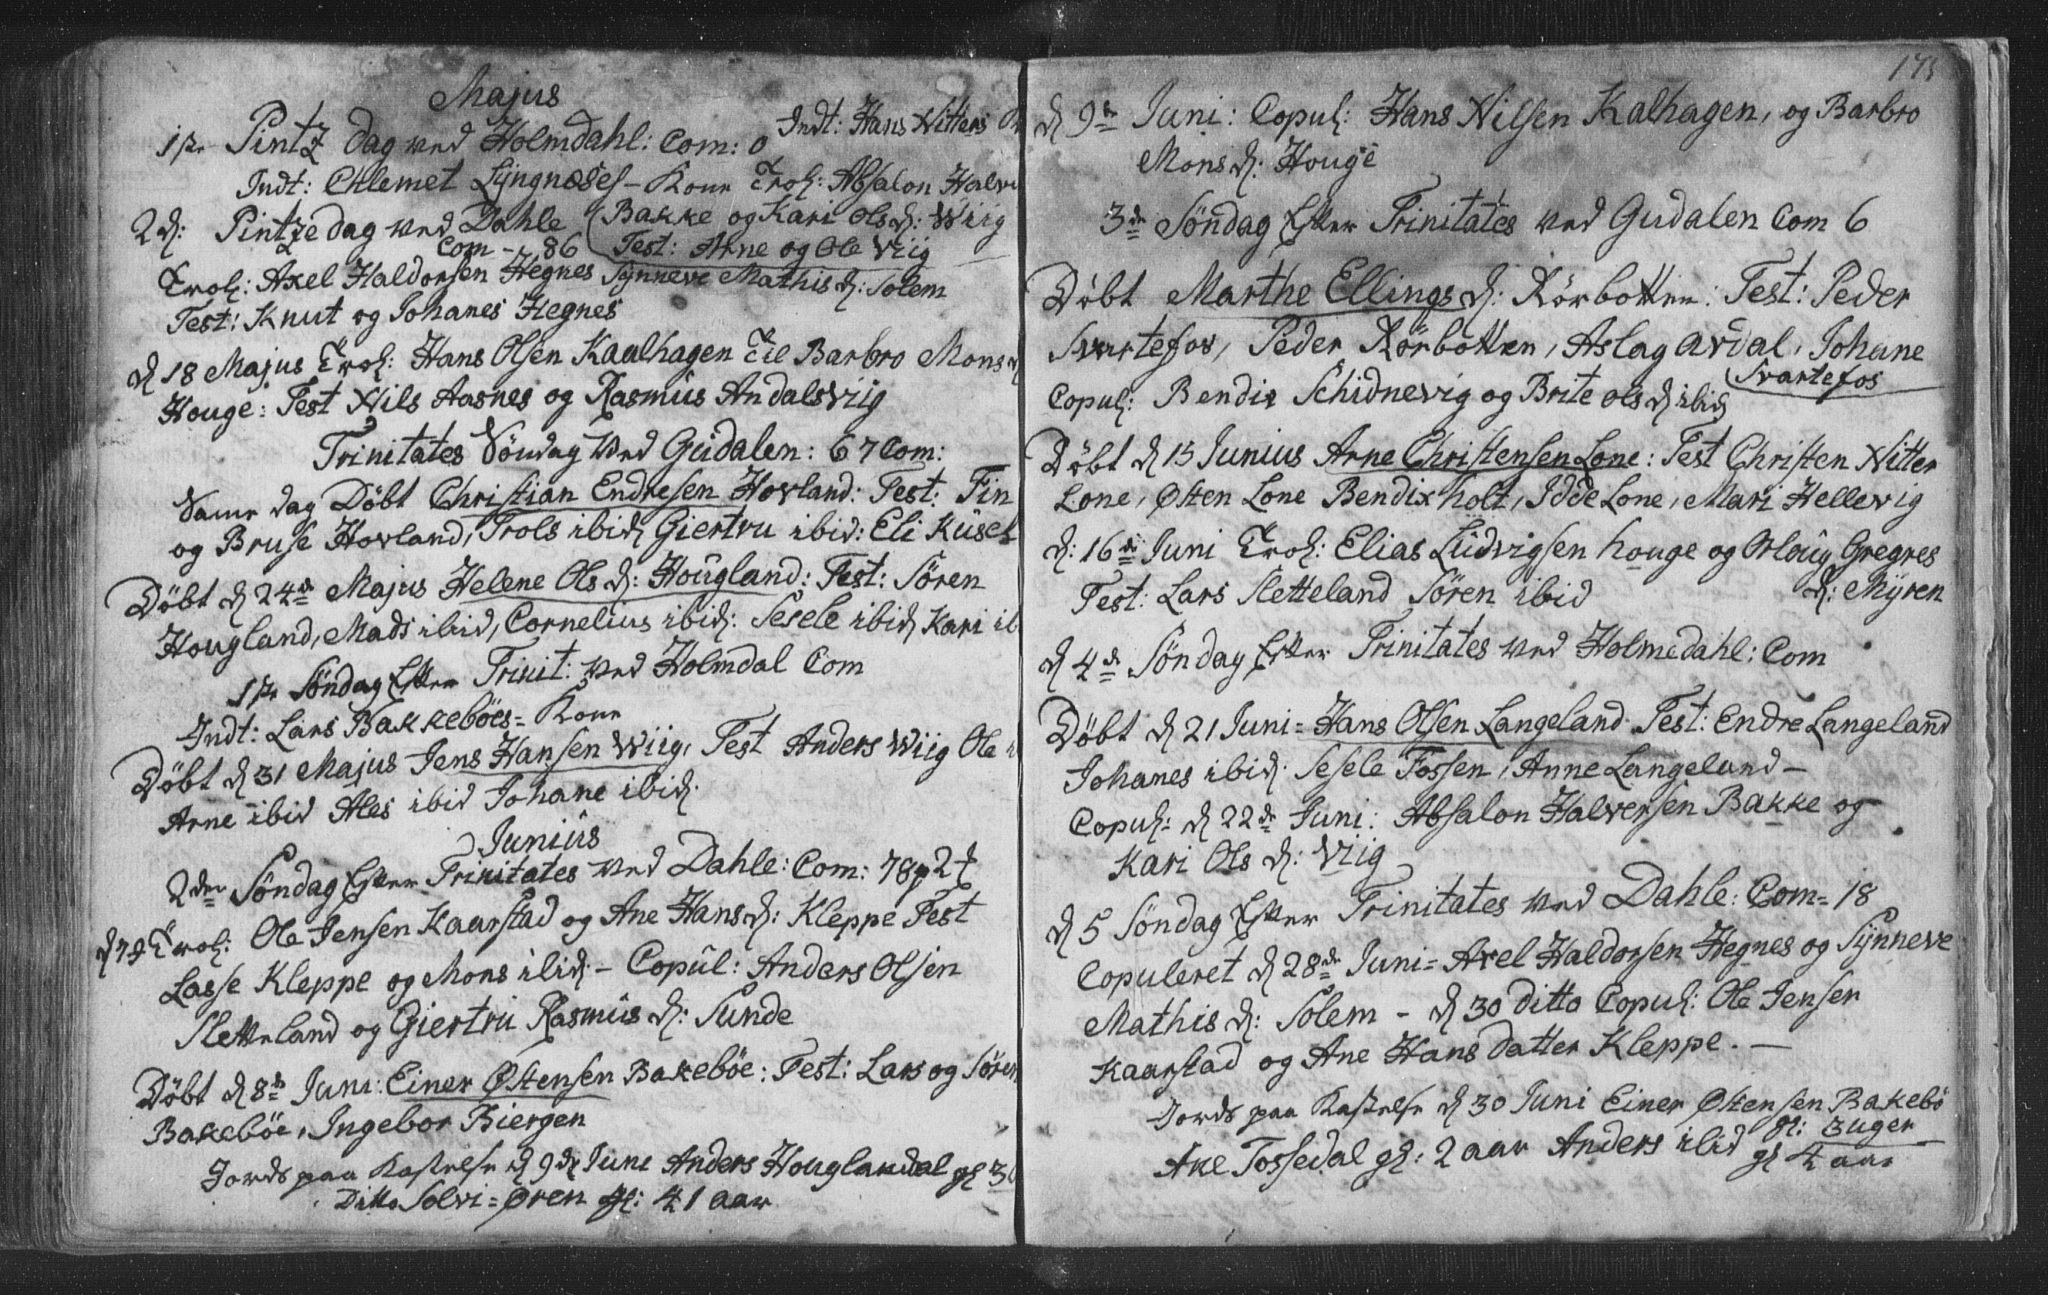 Majus
1ste Pintz dag ved Holmdahl: Com: 0 Indt: Hans Nitters
Indt: Clemet Lÿngnøses- Kone Trol: Absalon Halv
2d: Pintze dag ved Dahle Bakke og Kari Ols d: Wiig
Com - 86 Test: Arne og Ole Viig
Trol: Axel Haldorsen Hegnes Sÿnneve Mathis d: Solem
Test: Knut og Johanes Hegnes
d 18 Majus Trol: Hans Olsen Kaalhagen til Barbro Mons d
Houge: Test Nils Aasnes og Rasmus Andalsviig
Trinitates Søndag ved Gudalen: 67 Com:
Same dag Døbt Christian Endresen Hovland: Test: Fin
og Bruse Hovland, Trols ibid Giertru ibid: Eli Kusel
Døbt d 24de Majus Helene Ols d: Hougland: Test: Søren
Hougland, Mads ibid, Cornelius ibid: Sesele ibid Kari ib
1ste Søndag Efter Trinit: ved Holmdal Com
Indt: Lars Bakkebøes= Kone
Døbt d 31 Majus Jens Hansen Wiig, Test Anders Wiig Ole i
Arne ibid Ales ibid Johane ibid.
Junius
2den Søndag Efter Trinitates ved Dahle: Com: 78 p 2
d 7 Trol: Ole Jensen Kaarstad og Ane Hans d: Kleppe Test
Lasse Kleppe og Mons ibid.- Copul: Anders Olsen
Sletteland og Giertru Rasmus d: Sunde
Døbt d 8de Juni: Einer Østensen Bakebøe: Test: Lars og Søren
Bakebøe, Ingebor Biergen
Jords paa Kastelse d 9de Juni Anders Houglandal gl 3
Ditto Solvi= Øren gl: 41 aar
175
d 9de Juni: Copul: Hans Nilsen Kalhagen, og Barbro
Mons d: Houge
3de Søndag Efter Trinitates ved Gudalen Com 6
Døbt Marthe Ellings d: Rørbotten: Test: Peder
Svartefos, Peder Rørbotten, Aslag Avdal, Johane
Svartefos
Copul: Bendix Schidnevig og Brite Ols d ibid
Døbt d 15 Junius Arne Christensen Lone: Test Christen Nitter
Lone, Østen Lone Bendix holt, Idde Lone, Mari Hellevig
d: 16de Juni Trol: Elias Ludvigsen houge og Oloug Gregres
d: Mÿren
Test: Lars Sletteland Søren ibid
d 4de Søndag Efter Trinitates ved Holmedahl: Com
Døbt d 21 Juni= Hans Olsen Langeland Test: Endre Langeland
Johanes ibid Sesele Fossen, Anne Langeland-
Copul: d 22de Juni: Absalon Halversen Bakke og
Kari Ols d: Viig
d 5 Søndag Efter Trinitates ved Dahle: Com= 18
Copuleret d 28de Juni= Axel Haldorsen Hegnes og Sÿnneve
Mathis d: Solem - d 30 ditto Copul: Ole Jensen
Kaarstad og Ane Hans datter Kleppe. -
Jords paa Kastelse d 30 Juni Einer Østensen Bakebø
gl: 3 uger
Ane Tossedal gl: 2 aar Anders ibid gl 4 aar